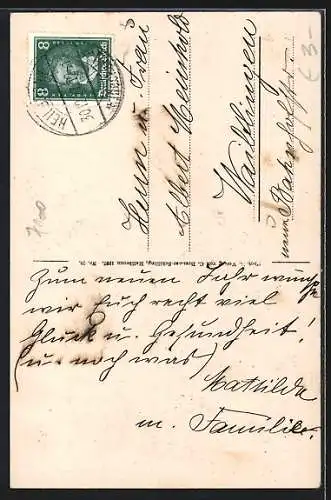 8 Deutsches Reich 8
HEIL
Herrn u. Frau
Albert Meinhold
Waiblingen
Bahnhofstr.
€ 3-
Zum neuen Jahr wünsche
wir Euch recht viel
Glück u. Gesundheit!
(u. noch was)
Mathilde
m. Familie.